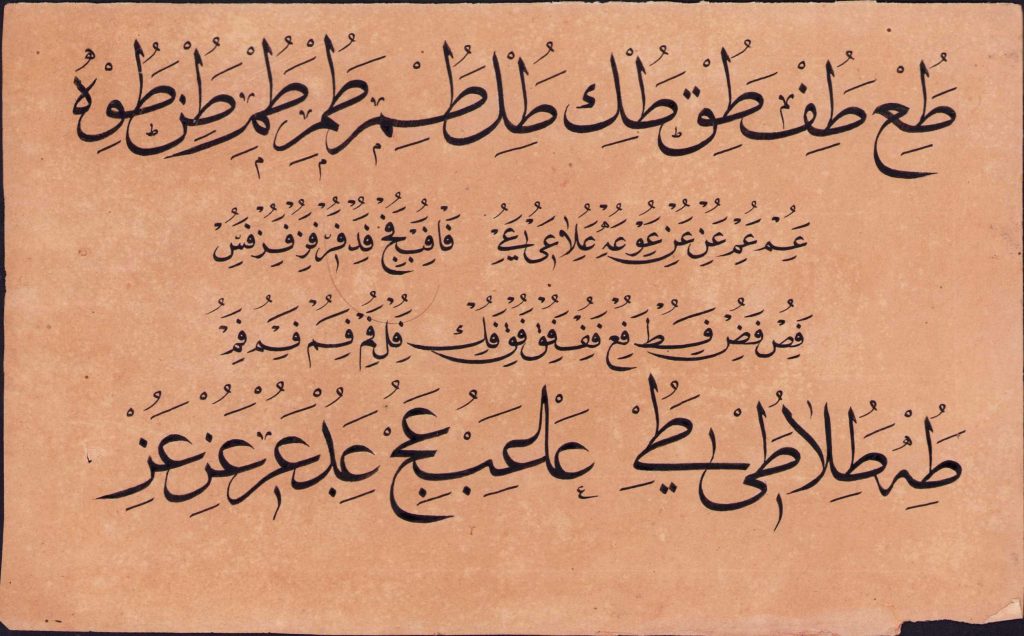 طع طف طق طك طل طم طم طم طن طوه
عم عم عن عن عو عه علا عى عے فا فب فج فد فر فز فز فس
فص فض فط فع فف فق فق فك فل فم فم فم فم
طه طلا طى طے عا عب عج عد عر عز عز